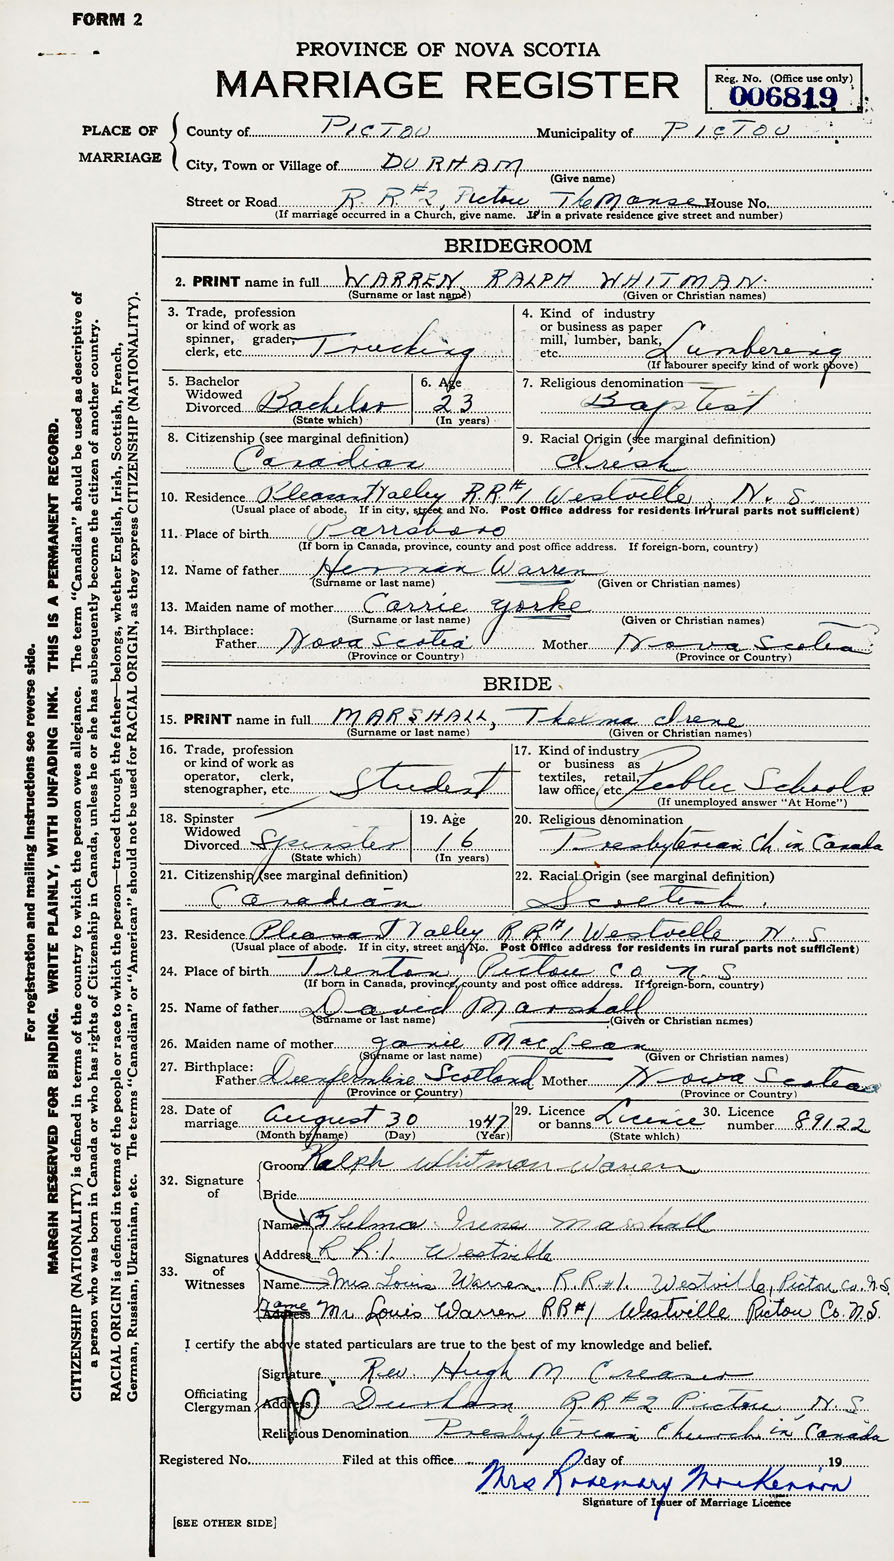 FORM 2
PROVINCE OF NOVA SCOTIA
MARRIAGE REGISTER
Reg. No. (Office use only)
006819
PLACE OF MARRIAGE
County of PICTOU Municipality of PICTOU
City, Town or Village of DURHAM
(Give name)
Street or Road R. R #2, Pictou The Manse House No.
(If marriage occurred in a Church, give name. If in a private residence give street and number)
BRIDEGROOM
2. PRINT name in full WARREN, RALPH WHITMAN.
(Surname or last name) (Given or Christian names)
3. Trade, profession or kind of work as spinner, grader, clerk, etc. Trucking
4. Kind of industry or business as paper mill, lumber, bank, etc. Lumbering
(If labourer specify kind of work above)
5. Bachelor Widowed Divorced Bachelor
(State which)
6. Age 23
(In years)
7. Religious denomination Baptist
8. Citizenship (see marginal definition) Canadian
9. Racial Origin (see marginal definition) Irish
10. Residence Pleasant Valley R.R #1 Westville, N. S.
(Usual place of abode. If in city, street and No. Post Office address for residents in rural parts not sufficient)
11. Place of birth Parrsboro
(If born in Canada, province, county and post office address. If foreign-born, country)
12. Name of father Herman Warren
(Surname or last name) (Given or Christian names)
13. Maiden name of mother Carrie Yorke
(Surname or last name) (Given or Christian names)
14. Birthplace: Father Nova Scotia Mother Nova Scotia
(Province or Country) (Province or Country)
BRIDE
15. PRINT name in full MARSHALL, Thelma Irene
(Surname or last name) (Given or Christian names)
16. Trade, profession or kind of work as operator, clerk, stenographer, etc. Student
17. Kind of industry or business as textiles, retail, law office, etc. Public Schools
(If unemployed answer "At Home")
18. Spinster Widowed Divorced Spinster
(State which)
19. Age 16
(In years)
20. Religious denomination Presbyterian Ch. in Canada
21. Citizenship (see marginal definition) Canadian
22. Racial Origin (see marginal definition) Scottish.
23. Residence Pleasant Valley R R #1 Westville, N. S
(Usual place of abode. If in city, street and No. Post Office address for residents in rural parts not sufficient)
24. Place of birth Trenton Pictou Co N. S
(If born in Canada, province, county and post office address. If foreign-born, country)
25. Name of father David Marshall
(Surname or last name) (Given or Christian names)
26. Maiden name of mother Janie MacLean
(Surname or last name) (Given or Christian names)
27. Birthplace: Father Dunfermline Scotland Mother Nova Scotia
(Province or Country) (Province or Country)
28. Date of marriage August 30 1947
(Month by name) (Day) (Year)
29. Licence or banns Licence
(State which)
30. Licence number 89122
32. Signature of
Groom Ralph Whitman Warren
Bride
33. Signatures of Witnesses
Name Thelma Irene Marshall
Address R R.1. Westville
Name Mrs Louis Warren. R.R #1. Westville, Pictou Co. N.S.
Name Address Mr Louis Warren RR #1 Westville Pictou Co. N.S.
I certify the above stated particulars are true to the best of my knowledge and belief.
Officiating Clergyman
Signature Rev. Hugh M Creaser
Address Durham R R #2 Pictou N. S
Religious Denomination Presbyterian Church in Canada
Registered No. Filed at this office day of 19
Mrs Rosemary MacKinnon
Signature of Issuer of Marriage Licence
[SEE OTHER SIDE]
For registration and mailing instructions see reverse side.
MARGIN RESERVED FOR BINDING. WRITE PLAINLY, WITH UNFADING INK. THIS IS A PERMANENT RECORD.
CITIZENSHIP (NATIONALITY) is defined in terms of the country to which the person owes allegiance. The term "Canadian" should be used as descriptive of
a person who was born in Canada or who has rights of Citizenship in Canada, unless he or she has subsequently become the citizen of another country.
RACIAL ORIGIN is defined in terms of the people or race to which the person—traced through the father—belongs, whether English, Irish, Scottish, French,
German, Russian, Ukrainian, etc. The terms "Canadian" or "American" should not be used for RACIAL ORIGIN, as they express CITIZENSHIP (NATIONALITY).